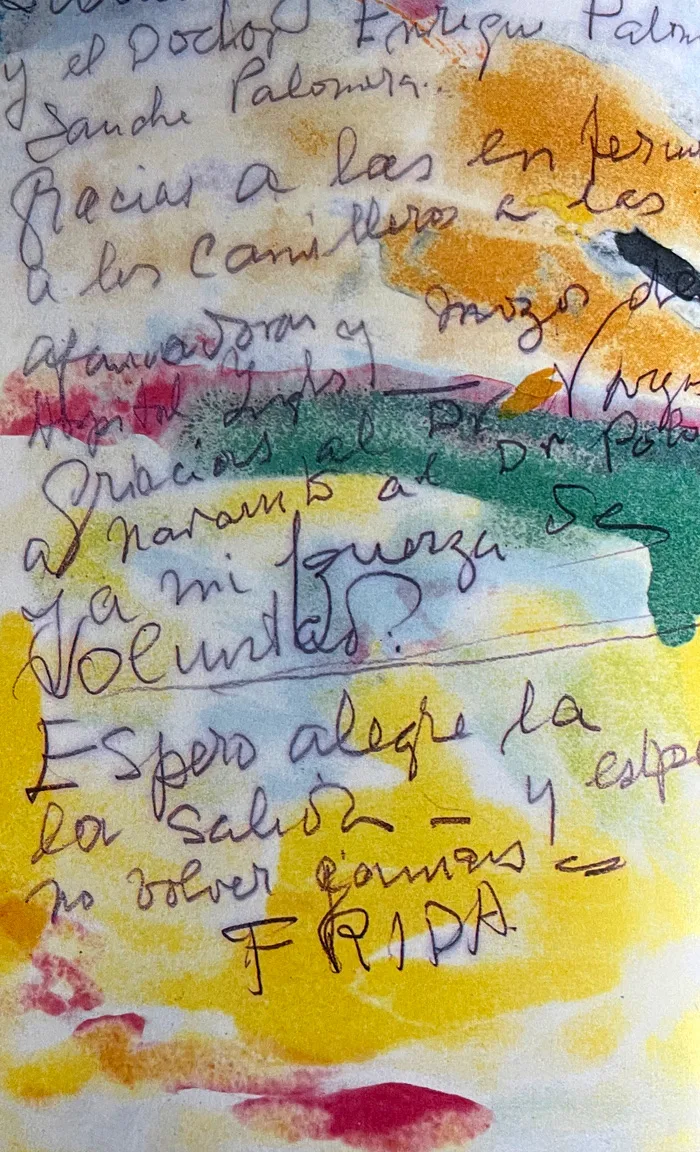 y el Doctor Enrique Palom
Sanche Palomera..
Gracias a las enferm
a los Camilleros a las
afanadoras y mozos de
Hospital Ingles —
Gracias al Dr Varga
a Navarro al Dr Polo
y a mi fuerza de
Voluntad.
Espero alegre la
la salida — y espe
no volver jamás —
FRIDA